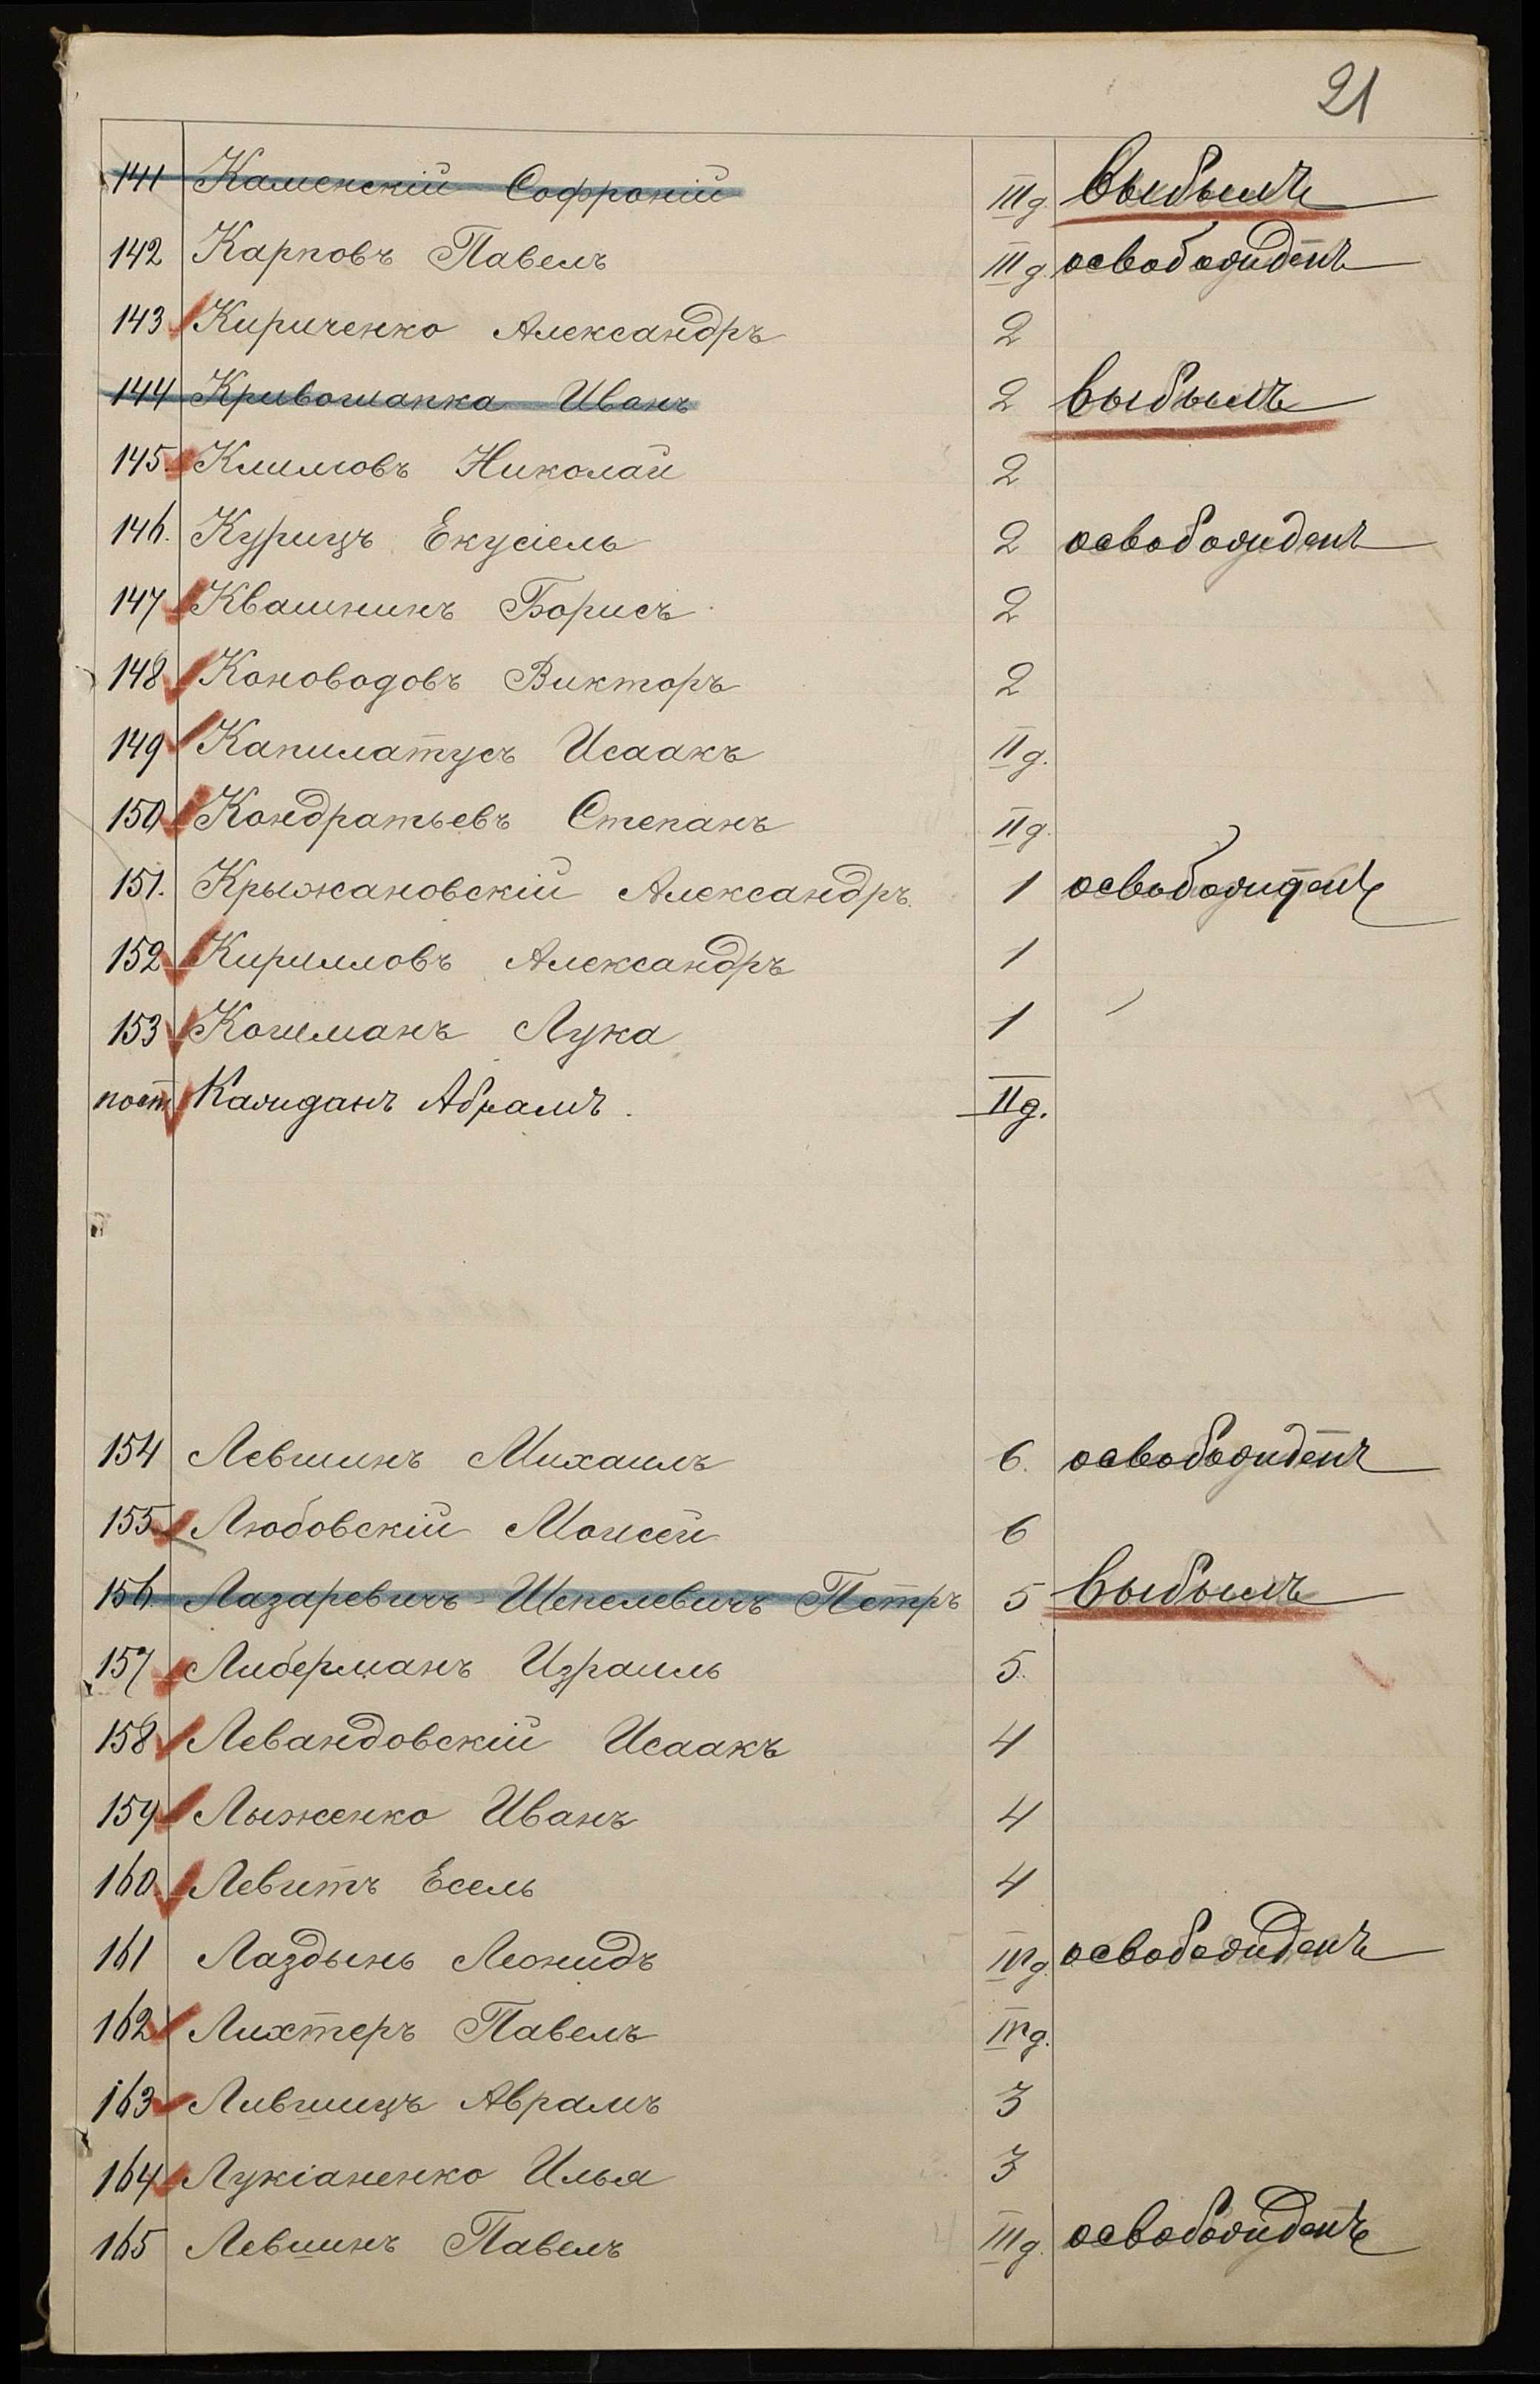 21
141 Каменскій Софроній IIIд. выбылъ
142 Карповъ Павелъ IIIд. освобожденъ
143 Кириченко Александръ 2
144 Кривошапка Иванъ 2 выбылъ
145. Климовъ Николай 2
146. Курицъ Екусіель 2 освобожденъ
147 Квашнинъ Борисъ 2
148 Коноводовъ Викторъ 2
149 Капилатусъ Исаакъ IIд.
150 Кондратьевъ Степанъ IIд.
151. Крыжановскій Александръ. 1 освобожденъ
152 Кирилловъ Александръ 1
153 Лука 1
пост Каждань Абрамъ. IIд.
154 Левшинъ Михаилъ 6. освобожденъ
155 Любовскій Моисей 6
156. Лазаревичъ-Шепелевичъ Петръ 5 выбылъ
157 Либерманъ Израиль 5.
158 Левандовскій Исаакъ 4
159 Лыженко Иванъ 4
160 Левитъ Есель 4
161 Лаздынь Леонидъ IVд. освобожденъ
162 Лихтеръ Павелъ IVд.
163 Лившицъ Аврамъ 3
164 Лукіаненко Илья 3
165 Левшинъ Павелъ IIIд. освобожденъ